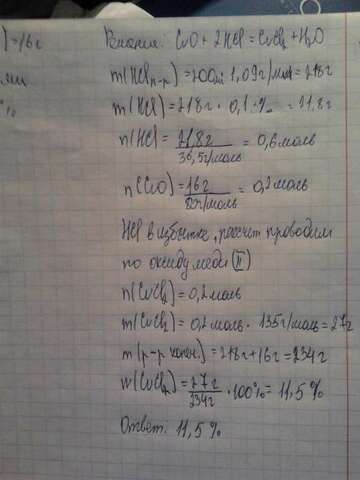 ) = 16г
Решение: CuO + 2HCl = CuCl₂ + H₂O
m(HCl р-р) = 200мл · 1,09г/мл = 218г
m(HCl) = 218г · 0,1 % = 21,8г
n(HCl) = 21,8г / 36,5г/моль = 0,6моль
n(CuO) = 16г / 80г/моль = 0,2моль
HCl в избытке, рассчет проводим
по оксиду меди (II)
n(CuCl₂) = 0,2моль
m(CuCl₂) = 0,2моль · 135г/моль = 27г
m(р-р конеч.) = 218г + 16г = 234г
w(CuCl₂) = 27г / 234г · 100% = 11,5%
Ответ: 11,5%